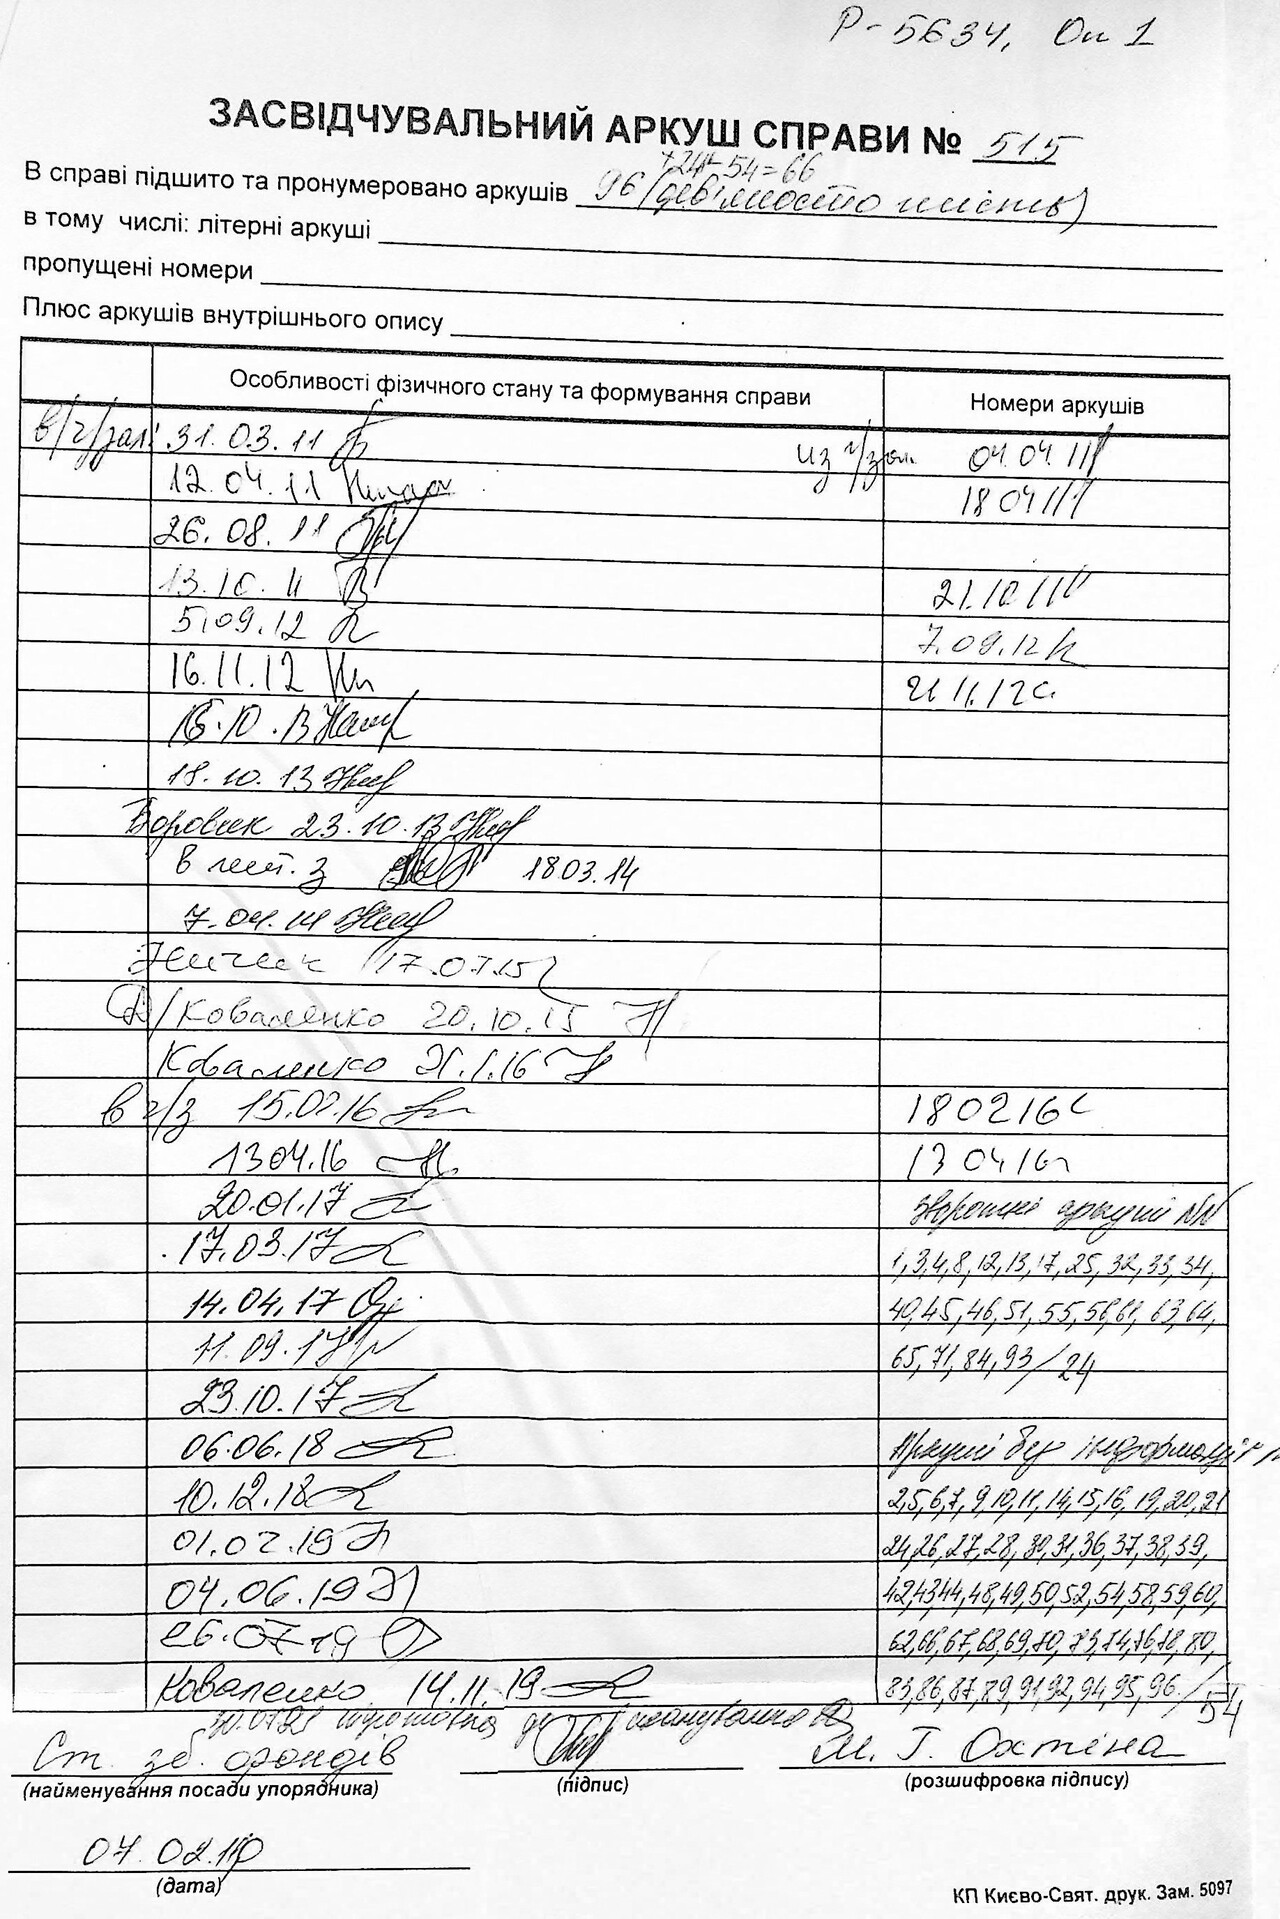 Р-5634, Оп 1
ЗАСВІДЧУВАЛЬНИЙ АРКУШ СПРАВИ № 515
+24+54=66
В справі підшито та пронумеровано аркушів 96 (дев'яносто шість)
в тому числі: літерні аркуші
пропущені номери
Плюс аркушів внутрішнього опису
Особливості фізичного стану та формування справи Номери аркушів
в/ч/зал: 31.03.11 из ч/зал. 04.04.11
12.04.11 18 04 11
26.08.11
13.10.11 21.10.11
5.09.12 7.09.12
16.11.12 21 11.12
16.10.13
18.10.13
Боровик 23.10.13
18.03.14
7.04.14
17.07.15
Коваленко 20.10.15
Коваленко 21.1.16
в ч/з 15.02.16 18 02 16
13 04.16 13 04 16
20.01.17 Зворотні аркуші NN
17.03.17 1,3,4,8,12,13,17,25,32,33,34,
14.04.17 40,45,46,51,55,56,61,63,64,
11.09.17 65,71,84,93/24
23.10.17
06.06.18 Аркуші без інформації
10.12.18 2,5,6,7,9,10,11,14,15,16,19,20,21
01.02.19 24,26,27,28,30,31,36,37,38,39,
04.06.19 42,43,44,48,49,50,52,54,58,59,60,
26.07.19 62,66,67,68,69,70,73,74,76,78,80,
Коваленко 14.11.19 83,86,87,89,91,92,94,95,96./54
30.07.21 підготовка до сканування
Ст. зб. фондів М. Г. Охтіна
(найменування посади упорядника) (підпис) (розшифровка підпису)
07.02.11р
(дата)
КП Києво-Свят. друк. Зам. 5097